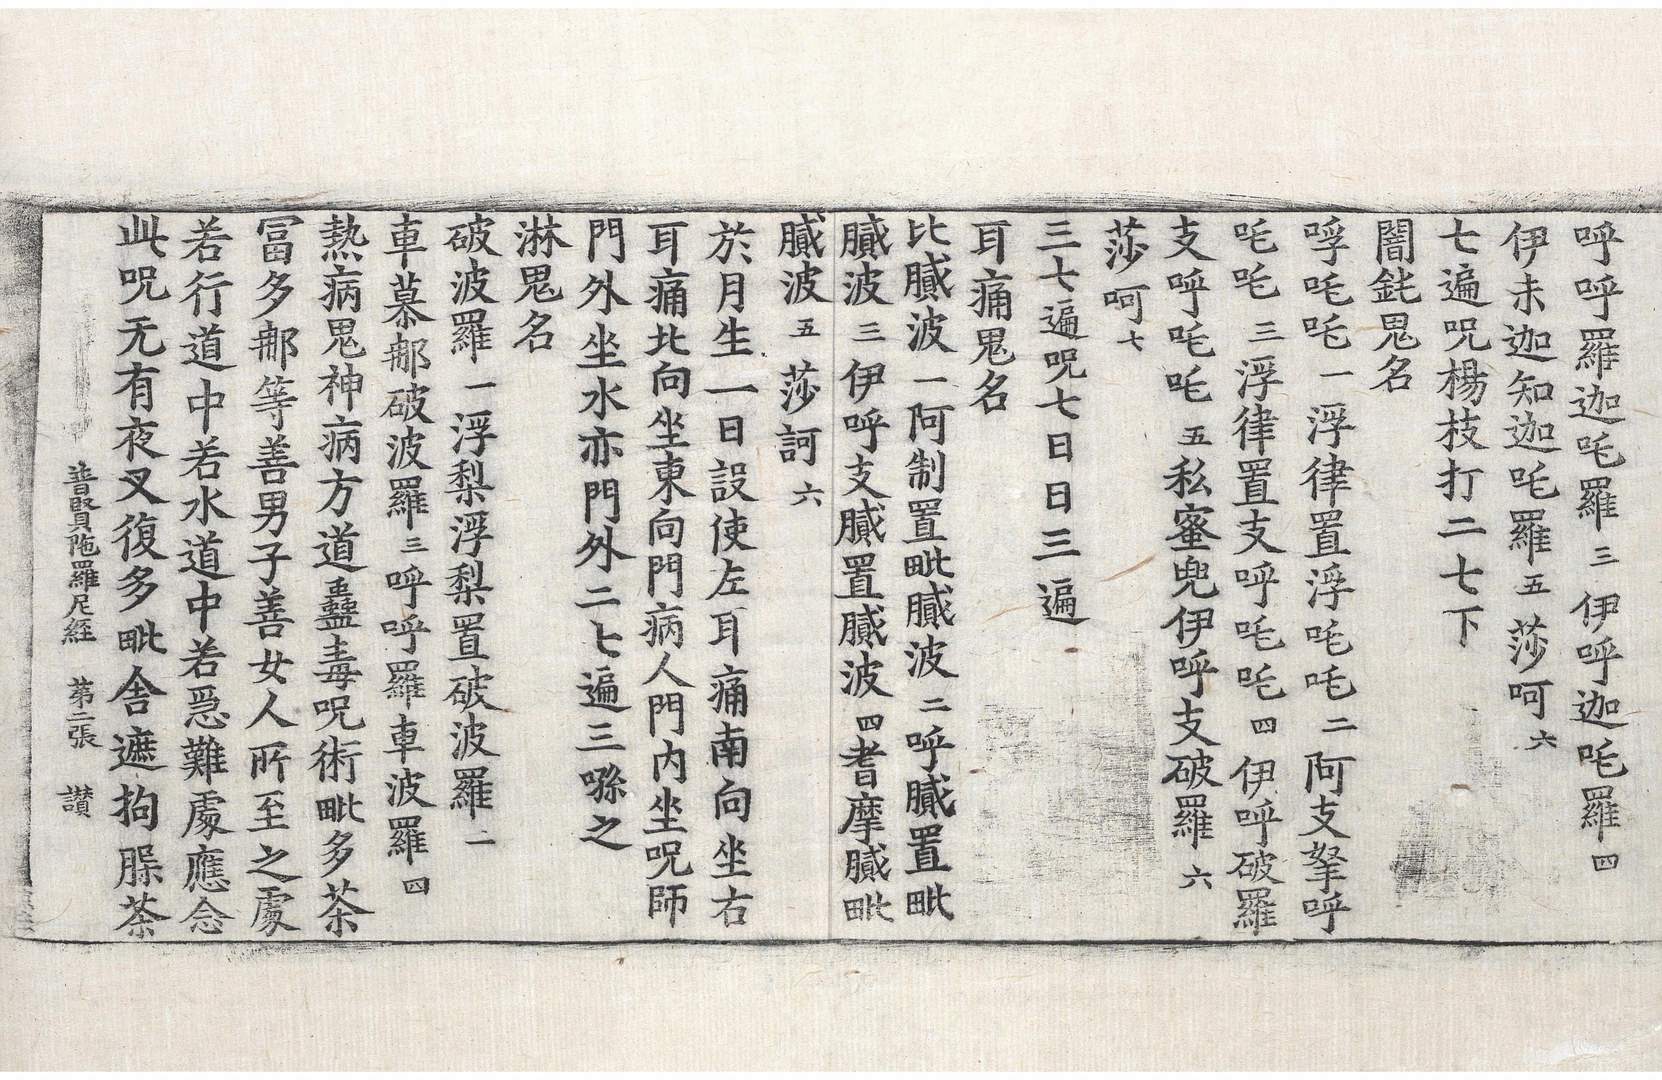 呼呼羅迦吒羅三伊呼迦吒羅四
伊未迦知迦吒羅五莎呵六
七遍呪楊枝打二七下
闇鈋鬼名
呼吒吒一浮律置浮吒吒二阿支拏呼
吒吒三浮律置支呼吒吒四伊呼破羅
支呼吒吒五私蜜兜伊呼支破羅六
莎呵七
三七遍呪七日日三遍
耳痛鬼名
比膩波一阿制置毗膩波二呼膩置毗
膩波三伊呼支膩置膩波四耆摩膩毗
膩波五莎訶六
於月生一日設使左耳痛南向坐右
耳痛北向坐東向門病人門內坐呪師
門外坐水亦門外二七遍三𠿒之
淋鬼名
破波羅一浮梨浮梨置破波羅二
車慕郍破波羅三呼呼羅車波羅四
熱病鬼神病方道蠱毒呪術毗多荼
冨多郍等善男子善女人所至之處
若行道中若水道中若急難處應念
此呪无有夜叉復多毗舍遮拘腬荼
普賢陁羅尼經 第二張 讃